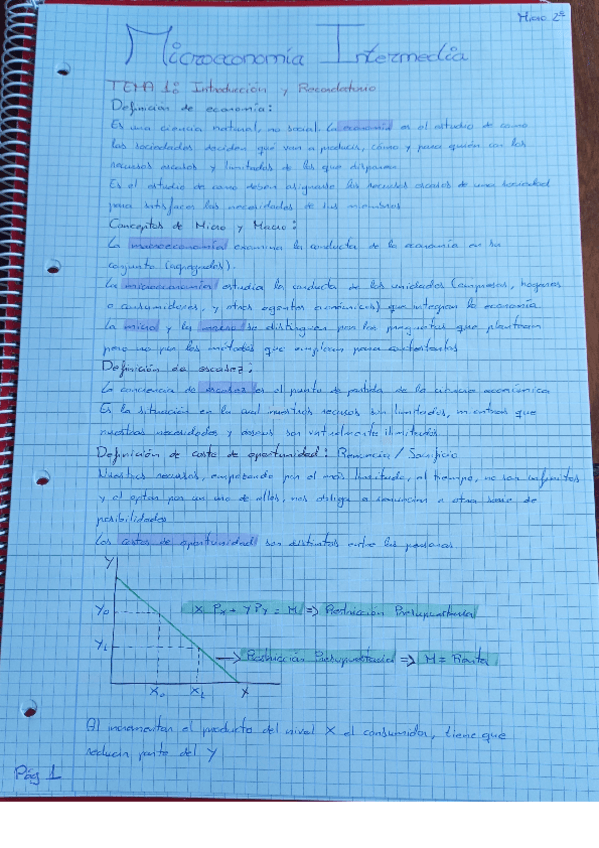 Micro 2º
Microeconomía Intermedia
TEMA 1: Introducción y Recordatorio
Definición de economía:
Es una ciencia natural, no social. La economía es el estudio de como
las sociedades deciden qué van a producir, cómo y para quién con los
recursos escasos y limitados de los que disponen.
Es el estudio de como deben asignarse los recursos escasos de una sociedad
para satisfacer las necesidades de sus miembros
Conceptos de Micro y Macro:
La macroeconomía examina la conducta de la economía en su
conjunto (agregados).
La microeconomía estudia la conducta de las unidades (empresas, hogares
o consumidores, y otros agentes económicos) que integran la economía
La micro y la macro se distinguen por las preguntas que plantean
pero no por los métodos que emplean para contestarlas
Definición de escasez:
La conciencia de escasez es el punto de partida de la ciencia económica
Es la situación en la cual nuestros recursos son limitados, mientras que
nuestras necesidades y deseos son virtualmente ilimitados
Definición de coste de oportunidad: Renuncia / Sacrificio
Nuestros recursos, empezando por el más limitado, el tiempo, no son infinitos
y el optar por un uso de ellos, nos obliga a renunciar a otra serie de
posibilidades
Los costes de oportunidad son distintos entre las personas.
Y
Y₀
X Pₓ + Y Pᵧ = M => Restricción Presupuestaria
Y₁
-> Restricción Presupuestaria => M = Renta
X₀ X₁ X
Al incrementar el producto del nivel X el consumidor, tiene que
reducir parte del Y
Pág 1